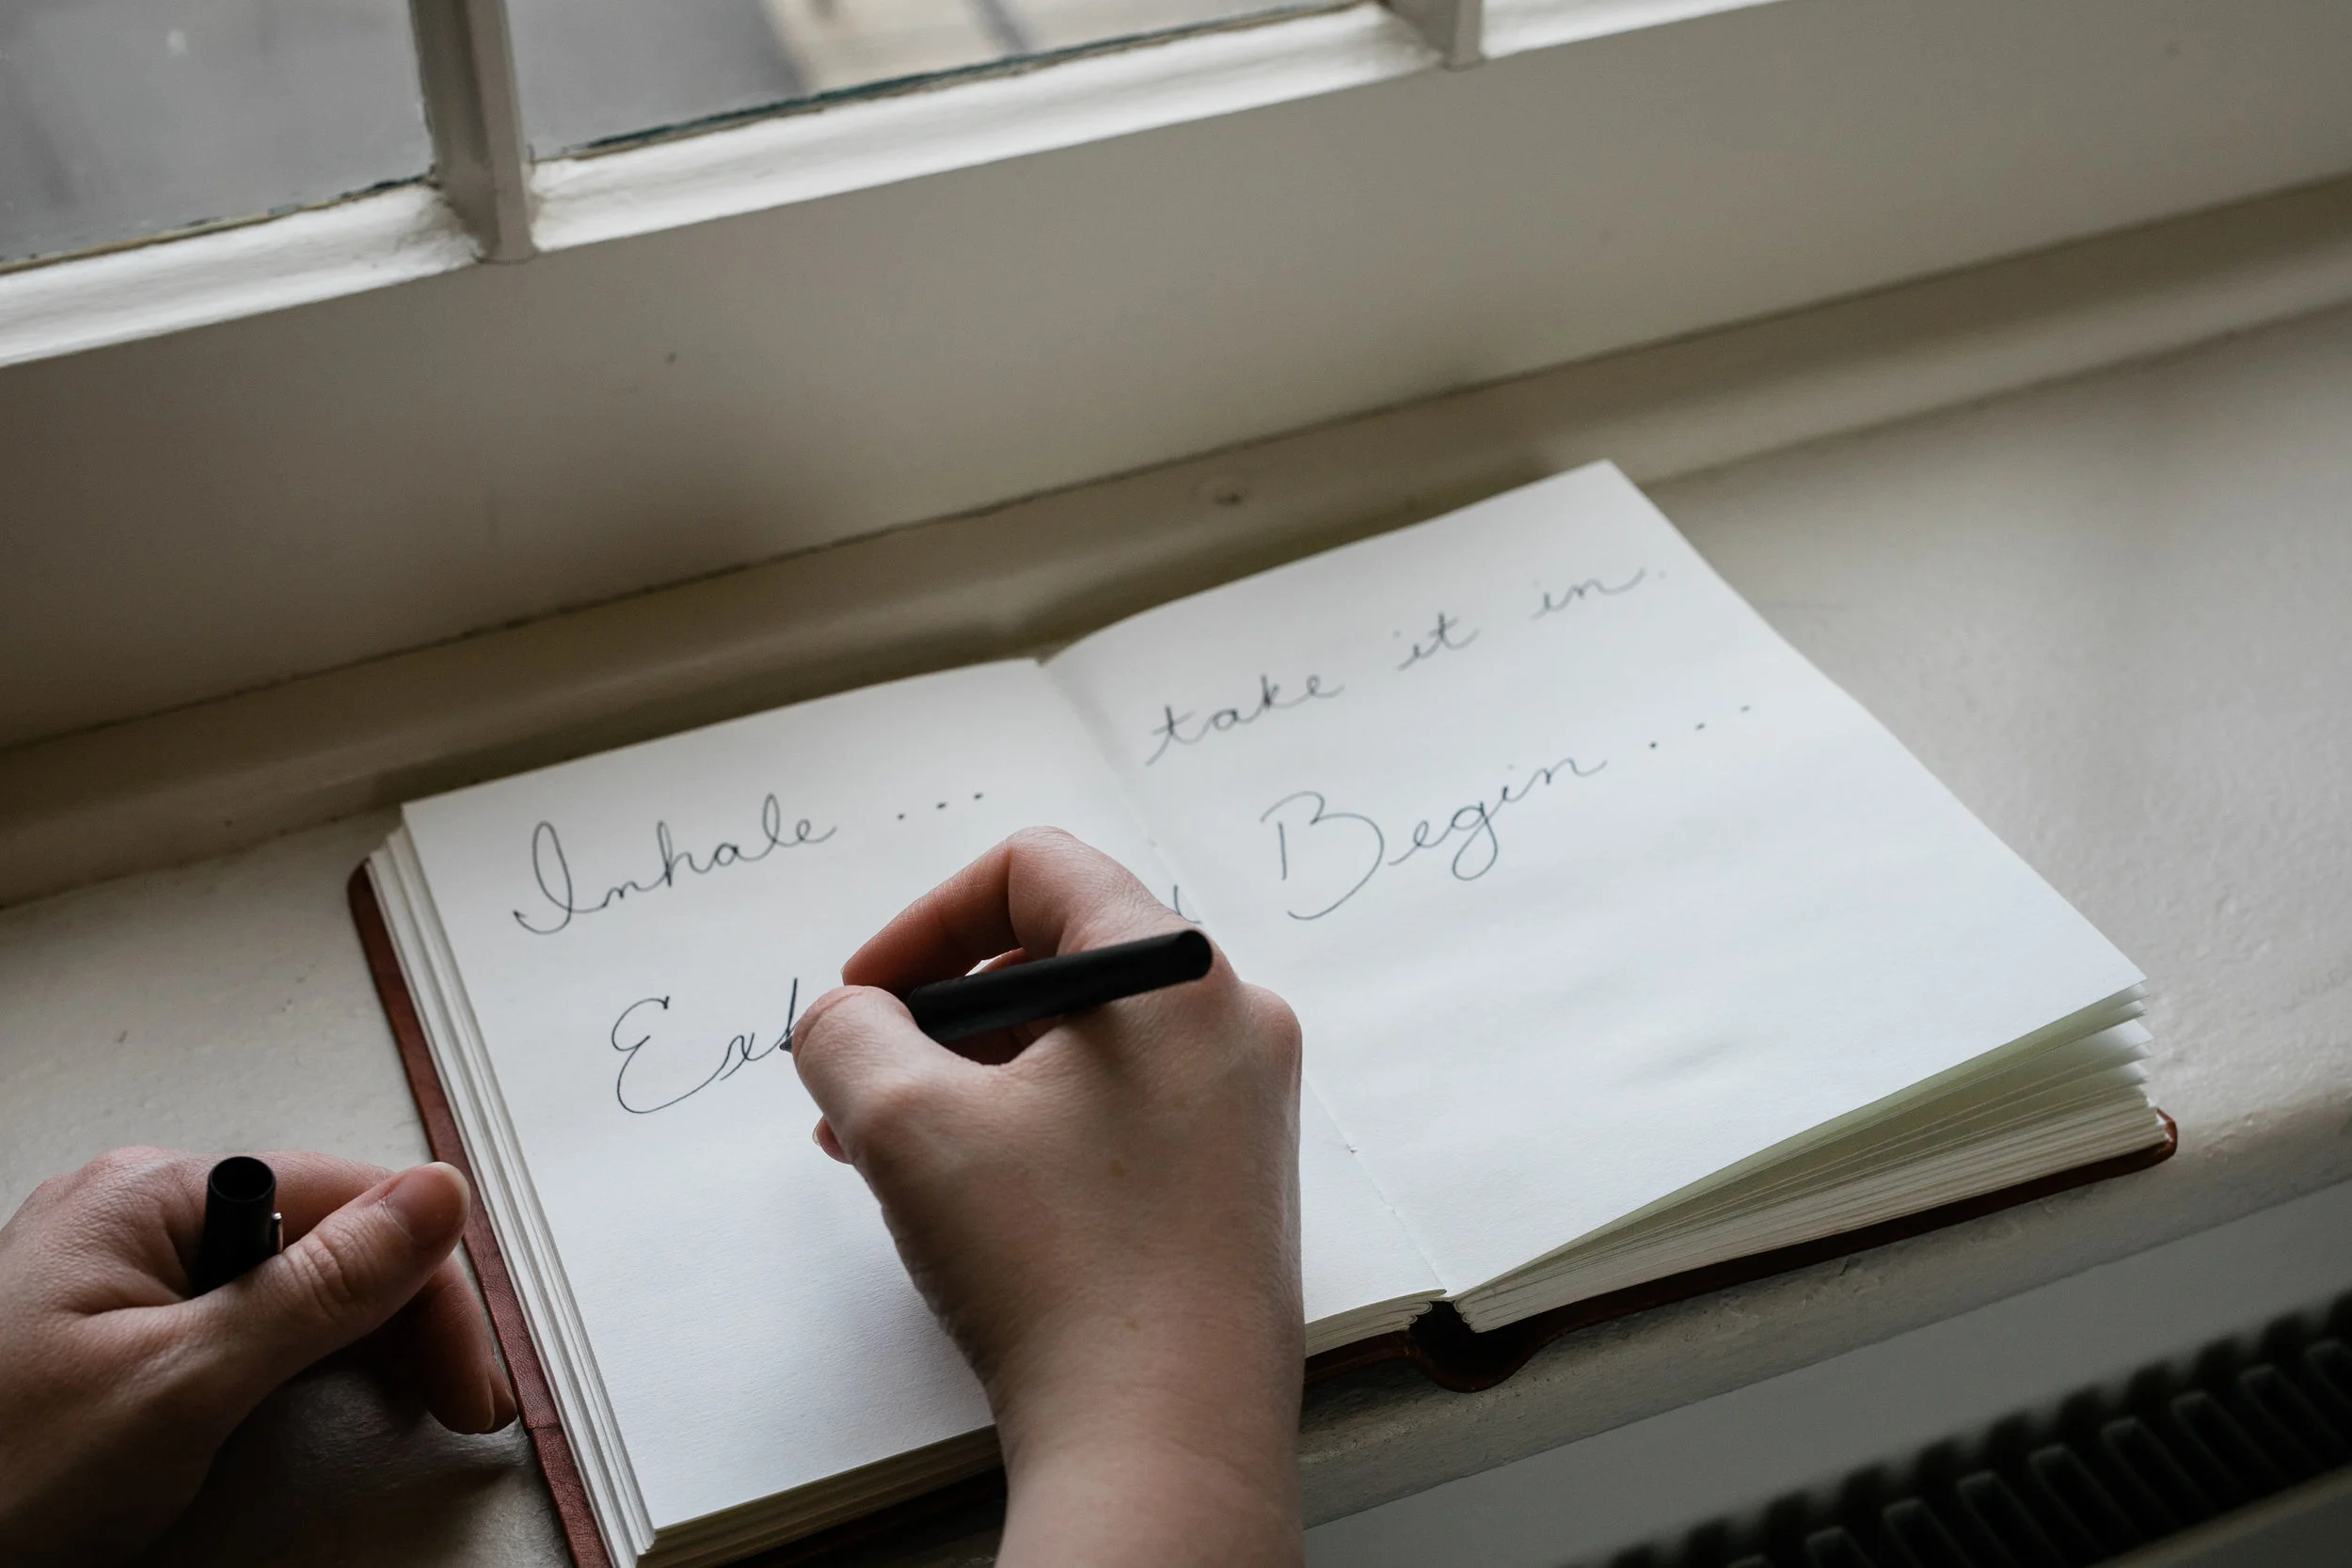 Inhale ...
Exh
take it in.
Begin ...